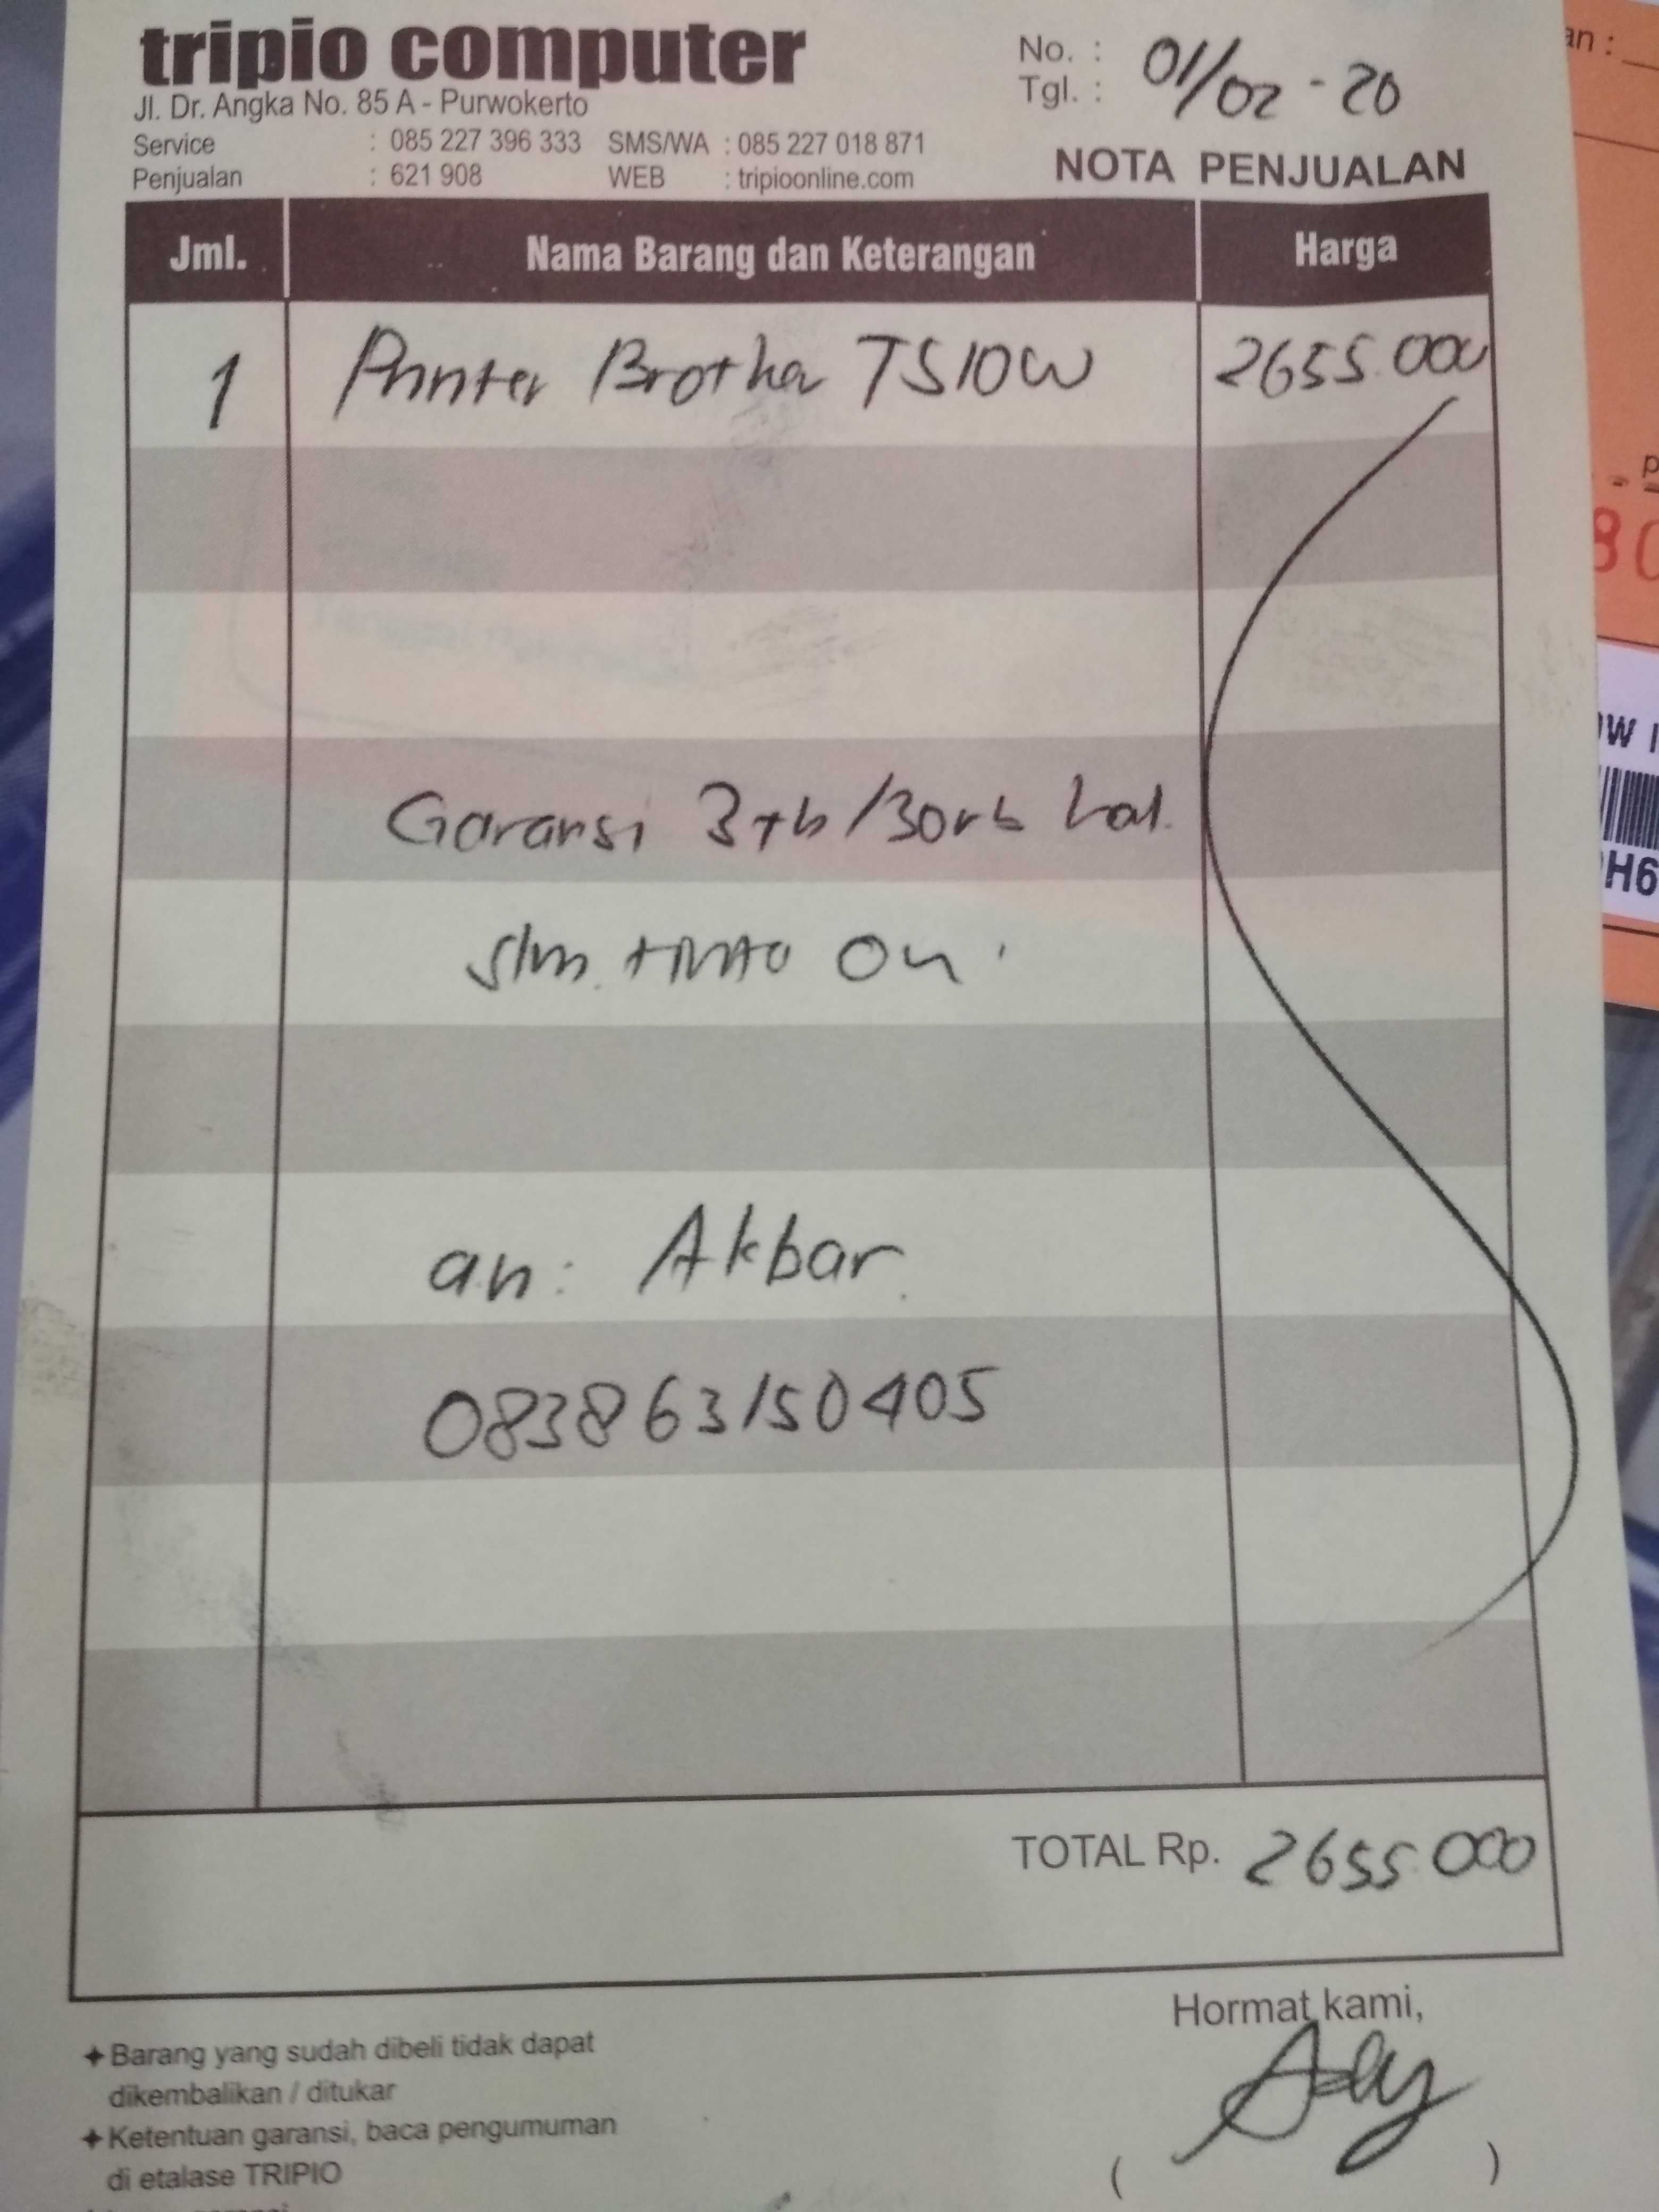 tripio computer
Jl. Dr. Angka No. 85 A - Purwokerto
Service : 085 227 396 333 SMS/WA : 085 227 018 871
Penjualan : 621 908 WEB : tripioonline.com
No. :
Tgl. : 01/02 - 20
NOTA PENJUALAN
Jml. Nama Barang dan Keterangan Harga
1 Printer Brother T510W 2655.000
Garansi 3th/30rb hal.
an: Akbar.
083863150405
TOTAL Rp. 2655.000
Hormat kami,
( )
Barang yang sudah dibeli tidak dapat
dikembalikan / ditukar
Ketentuan garansi, baca pengumuman
di etalase TRIPIO
an :
80
W
H6